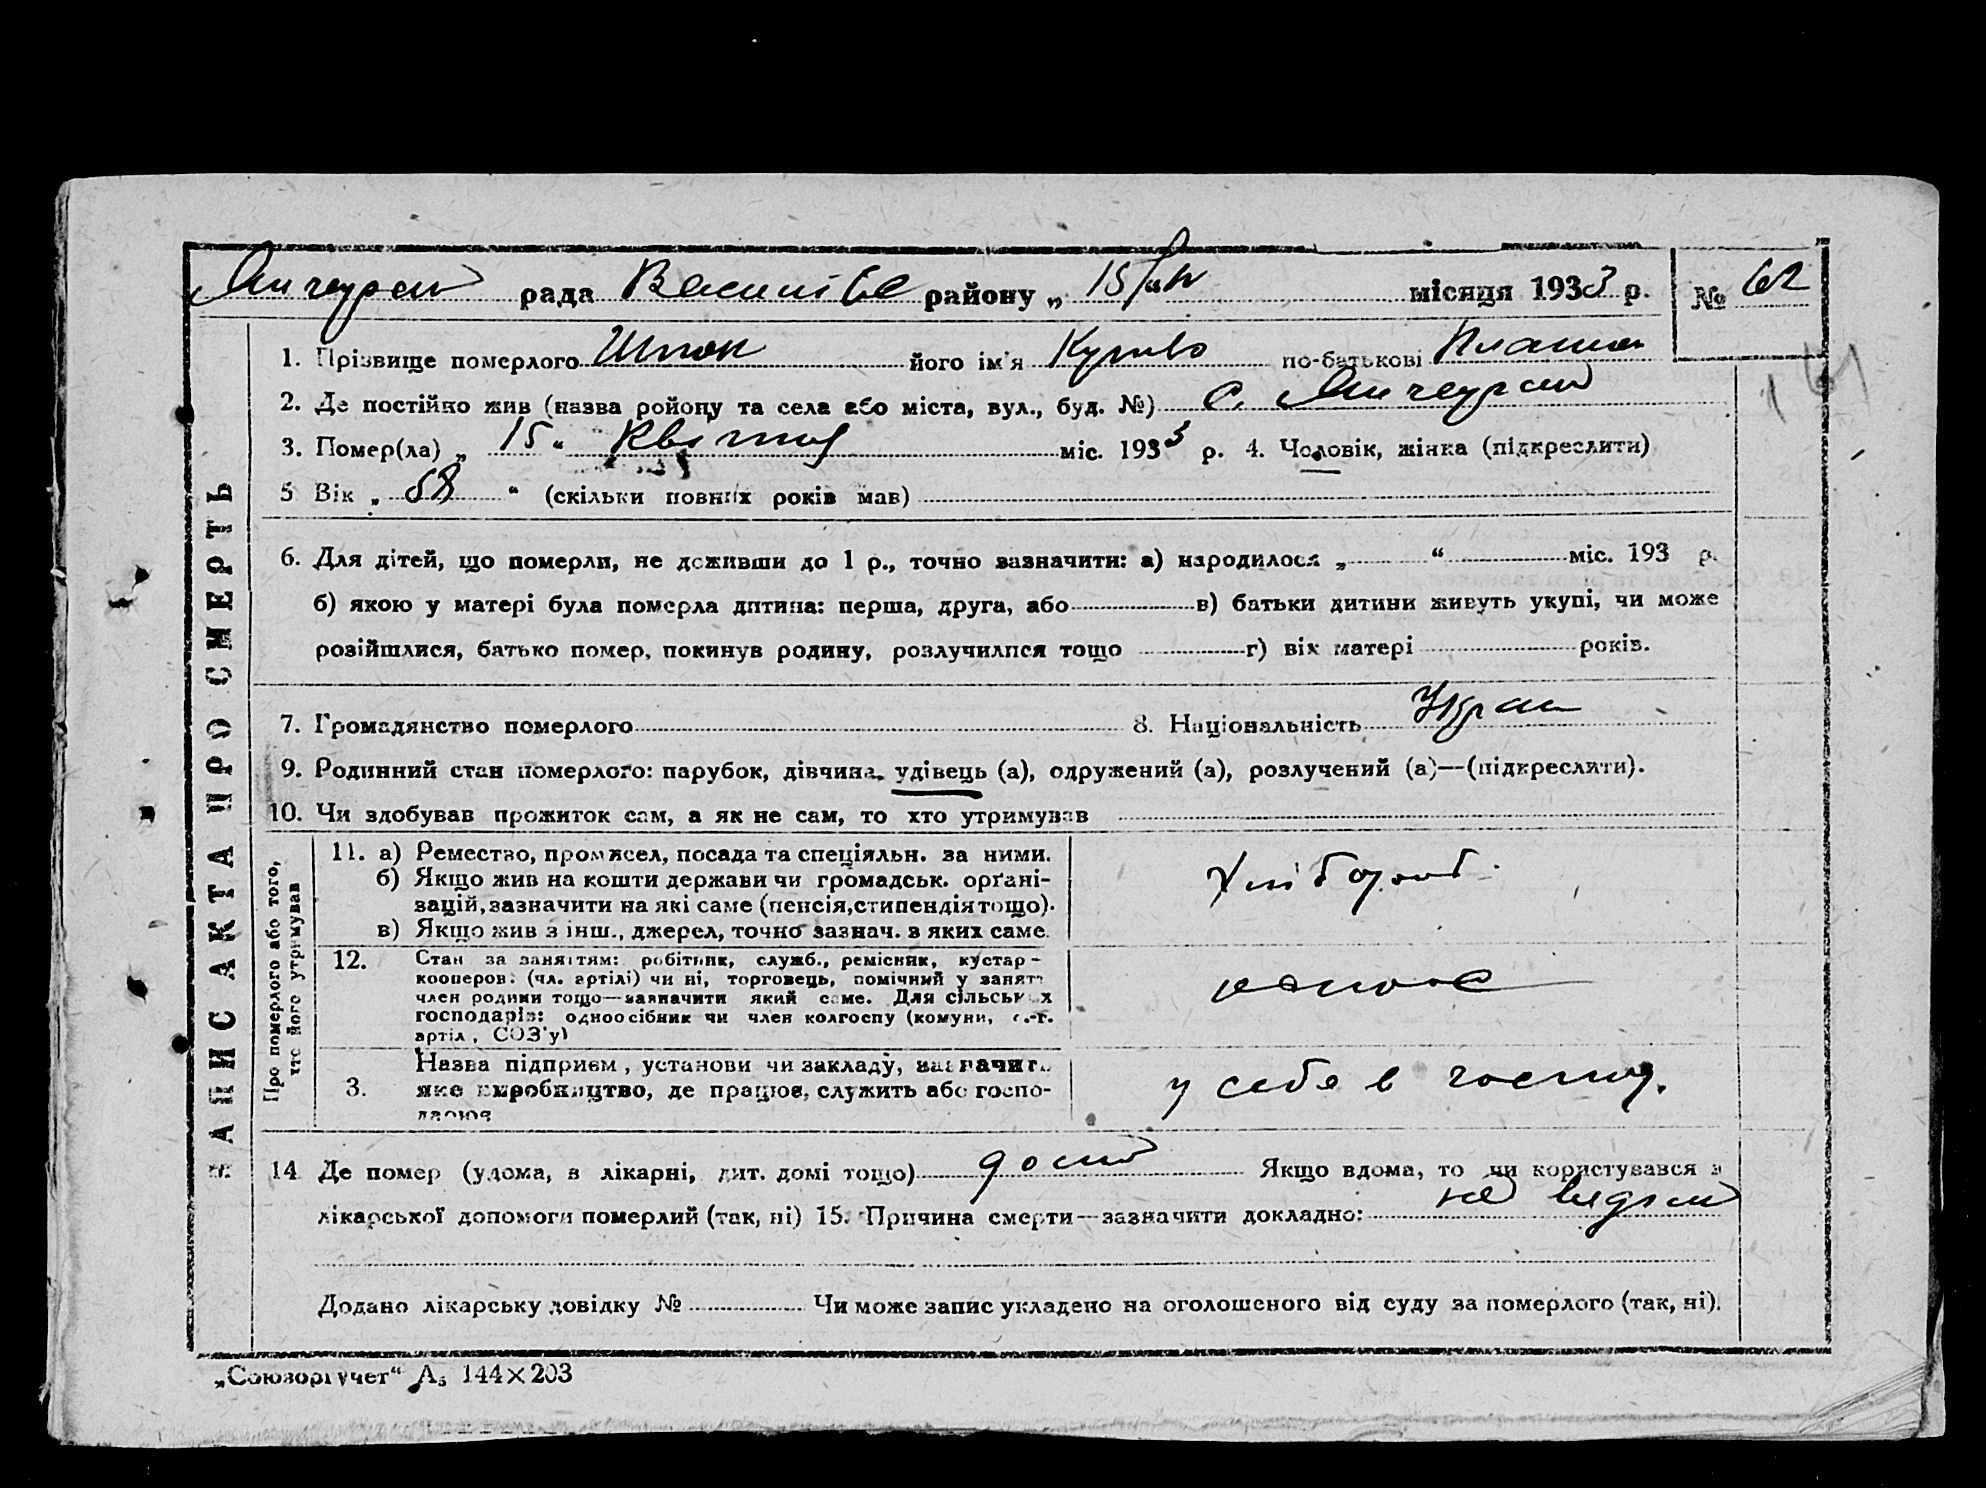 рада району „ 15/IV місяця 1933 р. № 62
ЗАПИС АКТА ПРО СМЕРТЬ
1. Прізвище померлого його ім'я по-батькові
2. Де постійно жив (назва ройону та села або міста, вул., буд. №) с.
3. Помер(ла) „ 15 “ Квітня міс. 1933 р. 4. Чоловік, жінка (підкреслити)
5 Вік „ 58 “ (скільки повних років мав)
6. Для дітей, що померли, не доживши до 1 р., точно зазначити: а) народилося „ “ міс. 193 р.
б) якою у матері була померла дитина: перша, друга, або в) батьки дитини живуть укупі, чи може
розійшлися, батько помер, покинув родину, розлучилися тощо г) вік матері років.
7. Громадянство померлого 8. Національність Україн
9. Родинний стан померлого: парубок, дівчина, удівець (а), одружений (а), розлучений (а)—(підкреслити).
10. Чи здобував прожиток сам, а як не сам, то хто утримував
Про померлого або того,
хто його утримував
11. а) Ремество, промисел, посада та спеціяльн. за ними.
б) Якщо жив на кошти держави чи громадськ. орґані-
зацій, зазначити на які саме (пенсія, стипендія тощо).
в) Якщо жив з інш., джерел, точно зазнач. з яких саме.
Хлібороб
12. Стан за заняттям: робітник, служб., ремісник, кустар-
кооперов. (чл. артілі) чи ні, торговець, помічний у занятт
член родини тощо—зазначити який саме. Для сільських
господарів: одноосібник чи член колгоспу (комуни, с.-г.
артіл, СОЗ'у)
3. Назва підприєм, установи чи закладу, зазначит
яке виробництво, де працює, служить або госпо-
дарює
у себе в господ.
14 Де помер (удома, в лікарні, дит. домі тощо) дома Якщо вдома, то чи користувався з
лікарської допомоги померлий (так, ні) 15. Причина смерти—зазначити докладно: не
Додано лікарську довідку № Чи може запис укладено на оголошеного від суду за померлого (так, ні).
„Союзоргучет“ А₅ 144×203